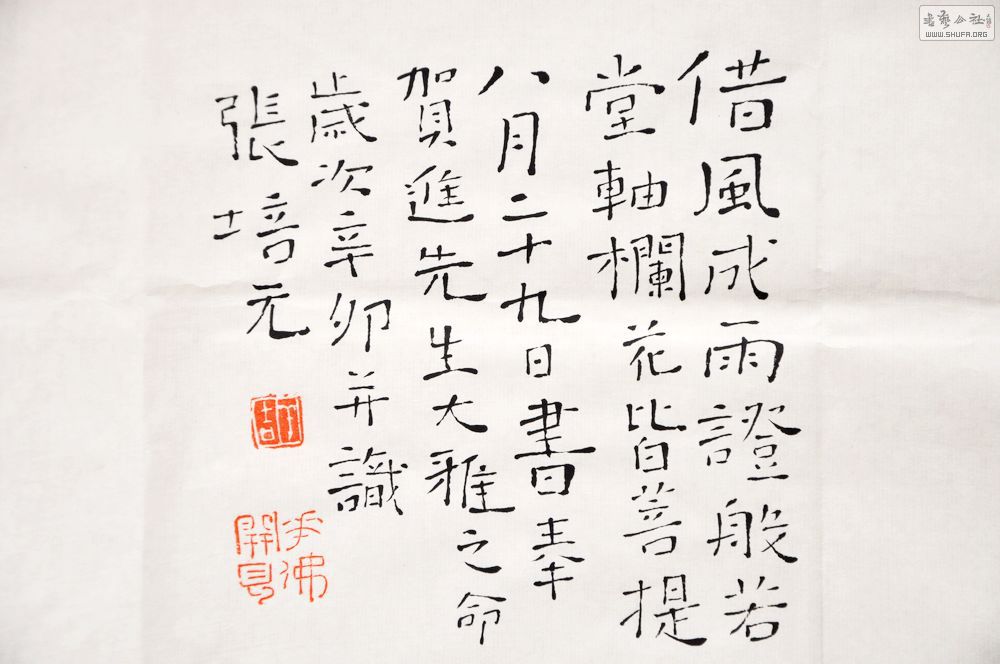 借風成雨證般若
堂軸欄花皆菩提
八月二十九日書奉
賀進先生大雅之命
歲次辛卯并識
張培元
開見
WWW.SHUFA.ORG